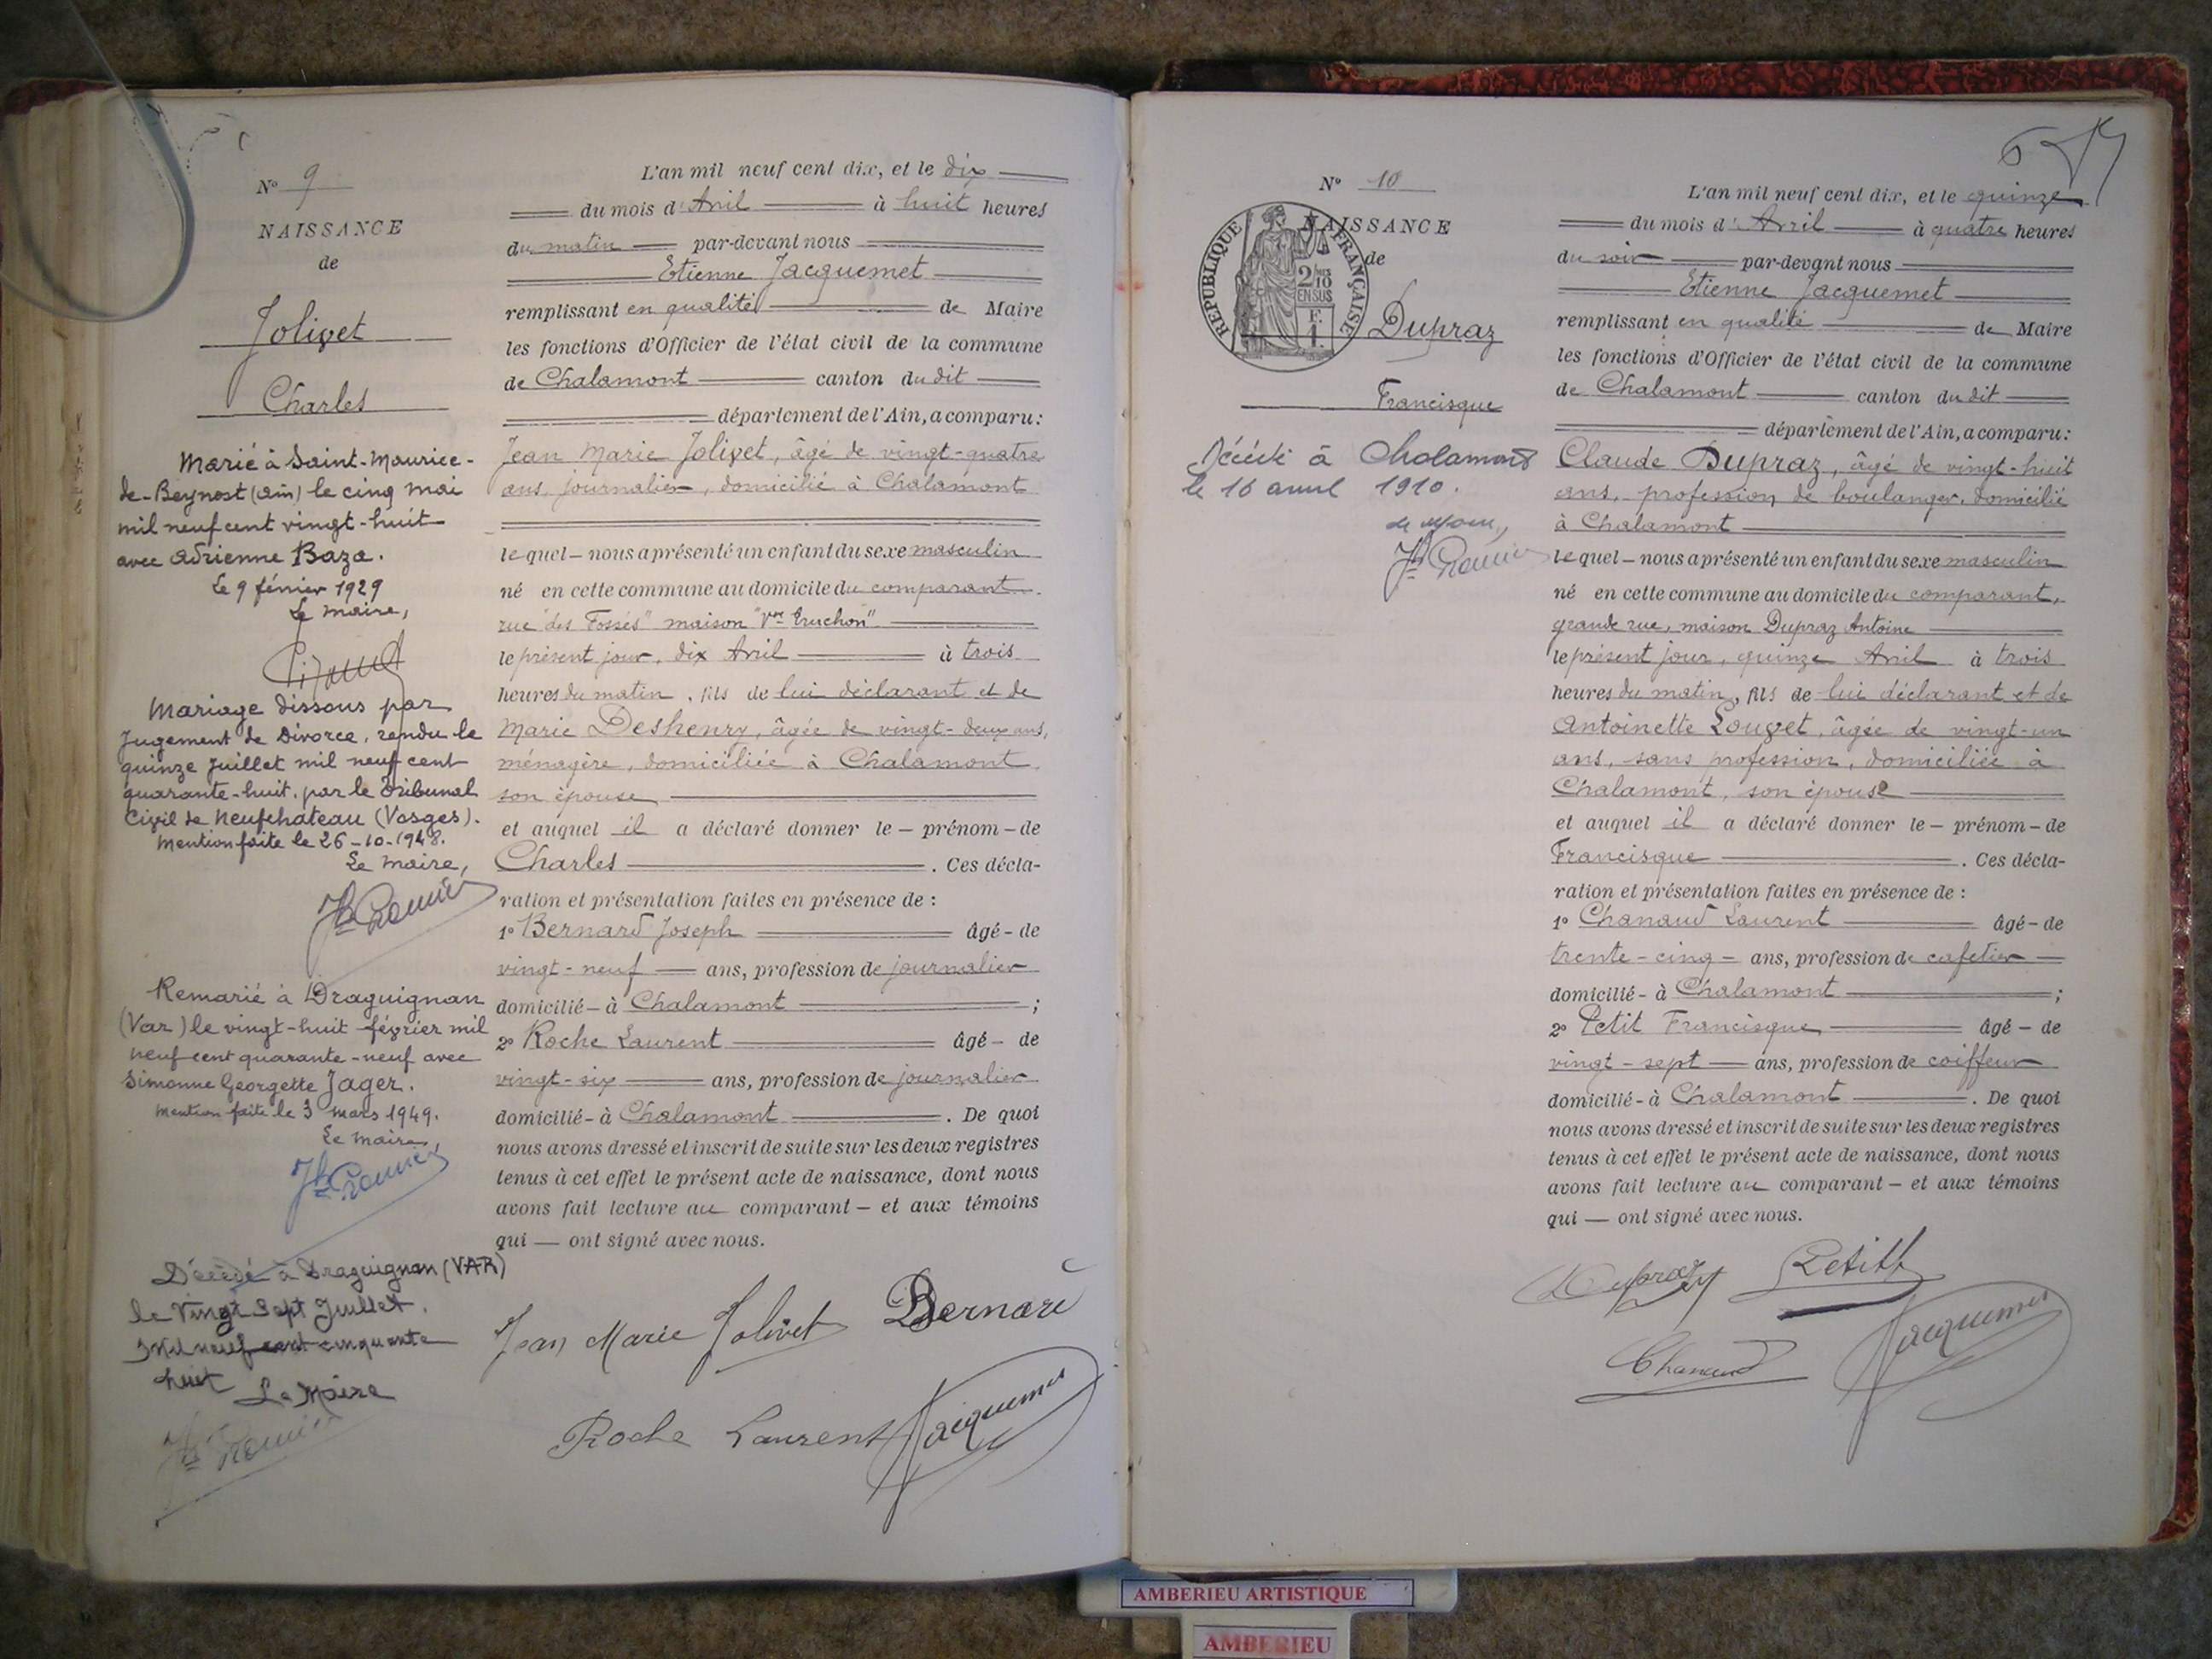 Nº 9
NAISSANCE
de
Jolivet
Charles
Marié à Saint-Maurice-
de-Beynost (Ain) le cinq mai
mil neuf cent vingt-huit
avec Adrienne Baza.
Le 9 février 1929
Le Maire,
Mariage dissous par
Jugement de Divorce, rendu le
quinze Juillet mil neuf cent
quarante-huit, par le Tribunal
Civil de Neufchâteau (Vosges).
Mention faite le 26-10-1948.
Le Maire,
Remarié à Draguignan
(Var) le vingt-huit février mil
neuf cent quarante-neuf avec
Simonne Georgette Jager.
Mention faite le 3 Mars 1949.
Le Maire,
Décédé à Draguignan (VAR)
le Vingt Sept Juillet
Mil neuf cent cinquante
huit
Le Maire
L'an mil neuf cent dix, et le dix
du mois d'Avril à huit heures
du matin par-devant nous
Etienne Jacquemet
remplissant en qualité de Maire
les fonctions d'Officier de l'état civil de la commune
de Chalamont canton du dit
département de l'Ain, a comparu:
Jean Marie Jolivet, âgé de vingt-quatre
ans, journalier, domicilié à Chalamont
lequel – nous a présenté un enfant du sexe masculin
né en cette commune au domicile du comparant
rue "des Fossés" maison "Vve Truchon"
le présent jour, dix Avril à trois
heures du matin, fils de lui déclarant et de
Marie Deshenry, âgée de vingt-deux ans,
ménagère, domiciliée à Chalamont
son épouse
et auquel il a déclaré donner le – prénom – de
Charles . Ces décla-
ration et présentation faites en présence de :
1º Bernard Joseph âgé – de
vingt-neuf ans, profession de journalier
domicilié – à Chalamont ;
2º Roche Laurent âgé – de
vingt-six ans, profession de journalier
domicilié – à Chalamont . De quoi
nous avons dressé et inscrit de suite sur les deux registres
tenus à cet effet le présent acte de naissance, dont nous
avons fait lecture au comparant – et aux témoins
qui — ont signé avec nous.
Jean Marie Jolivet Bernard
Roche Laurent Jacquemet
6
Nº 10
NAISSANCE
de
RÉPUBLIQUE FRANÇAISE
2/10
EN SUS
F.
1.
Dupraz
Francisque
Décédé à Chalamont
le 16 avril 1910.
L'an mil neuf cent dix, et le quinze
du mois d'Avril à quatre heures
du soir par-devant nous
Etienne Jacquemet
remplissant en qualité de Maire
les fonctions d'Officier de l'état civil de la commune
de Chalamont canton du dit
département de l'Ain, a comparu:
Claude Dupraz, âgé de vingt-huit
ans, profession de boulanger, domicilié
à Chalamont
lequel – nous a présenté un enfant du sexe masculin
né en cette commune au domicile du comparant,
grande rue, maison Dupraz Antoine
le présent jour, quinze Avril à trois
heures du matin, fils de lui déclarant et de
Antoinette Louvet, âgée de vingt-un
ans, sans profession, domiciliée à
Chalamont, son épouse
et auquel il a déclaré donner le – prénom – de
Francisque . Ces décla-
ration et présentation faites en présence de :
1º Chanaud Laurent âgé – de
trente-cinq – ans, profession de cafetier
domicilié – à Chalamont ;
2º Petit Francisque âgé – de
vingt-sept ans, profession de coiffeur
domicilié – à Chalamont . De quoi
nous avons dressé et inscrit de suite sur les deux registres
tenus à cet effet le présent acte de naissance, dont nous
avons fait lecture au comparant – et aux témoins
qui — ont signé avec nous.
Dupraz Petit
Chanaud Jacquemet
AMBERIEU ARTISTIQUE
AMBERIEU